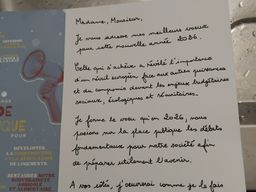 Madame, Monsieur,
Je vous adresse mes meilleurs vœux
pour cette nouvelle année 2026.
Celle qui s'achève a révélé l'importance
d'un réveil européen face aux autres puissances
et du compromis devant les enjeux budgétaires
sociaux, écologiques et sécuritaires.
Je forme le vœu qu'en 2026, nous
posions sur la place publique les débats
fondamentaux pour notre société afin
de préparer utilement l'avenir.
A vos côtés, j'œuvrerai comme je le fais
DÉVELOPPER
DE LOGEMENTS
RESTAURER NOTRE
SOUVERAINETÉ
AGRICOLE
ET ALIMENTAIRE